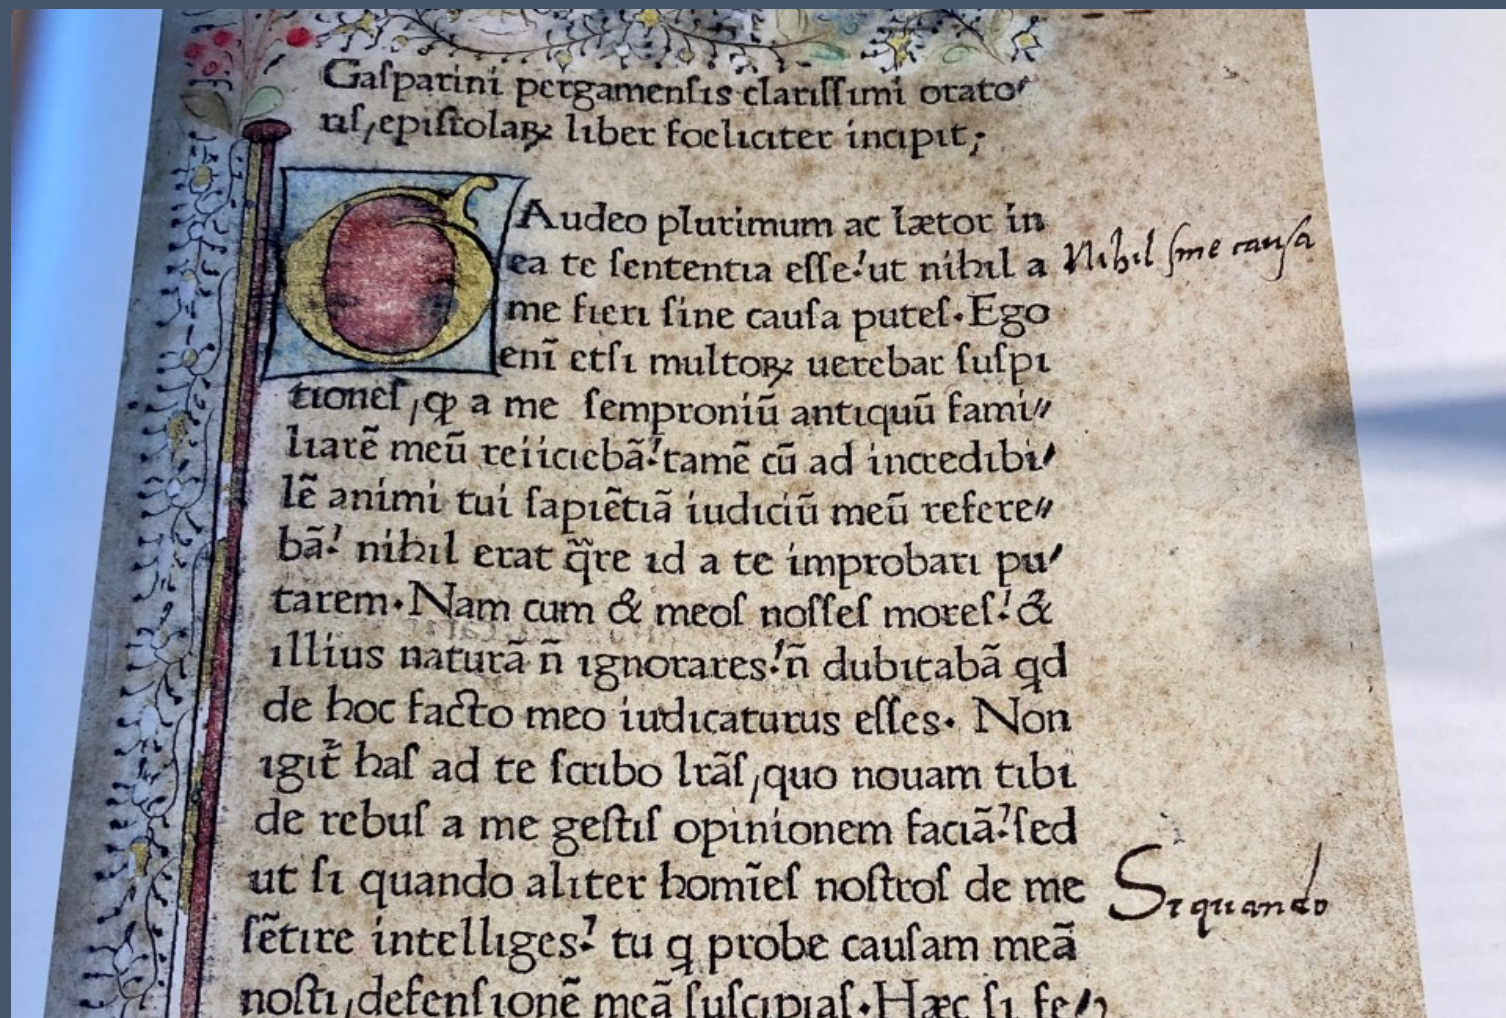 Gaſparini pergamenſis clariſſimi orato⸍
riſ,epiſtolaꝝ liber foeliciter incipit;
GAudeo plurimum ac lætor in
ea te ſententia eſſe!ut nihil a
me fieri ſine cauſa puteſ.Ego
eni᷑ etſi multoꝝ uerebar ſuſpi
tioneſ,ꝙ a me ſemproniū antiquū fami⸗
liarē meū reiiciebā!tamē cū ad incredibi⸍
lē animi tui ſapiētiā iudiciū meū refere⸗
bā! nihil erat q̃re id a te improbari pu⸍
tarem.Nam cum & meoſ noſſeſ moreſ!&
illius naturā n̄ ignorares!n̄ dubitabā qd
de hoc facto meo iudicaturus eſſes. Non
igit᷑ haſ ad te ſcribo lr̃aſ,quo nouam tibi
de rebuſ a me geſtiſ opinionem faciā?ſed
ut ſi quando aliter homīeſ noſtroſ de me
ſētire intelligeſ? tu q probe cauſam meā
noſti,defenſionē meā ſuſcipiaſ.Hæc ſi fe⸗
Nihil ſine cauſa
Si quando